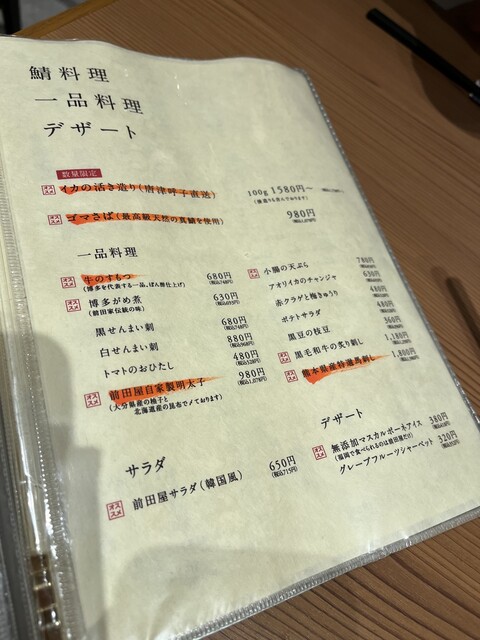 鯖料理
一品料理
デザート
数量限定
オススメ イカの活き造り(唐津呼子直送) 100g 1580円〜
オススメ ゴマさば(最高級天然の真鯖を使用) 980円
一品料理
オススメ 牛のすもつ 680円
(博多を代表する一品、ぽん酢仕上げ) (税込748円)
オススメ 博多がめ煮 630円
(前田家伝統の味) (税込693円)
黒せんまい刺 680円
(税込748円)
白せんまい刺 880円
(税込968円)
トマトのおひたし 480円
(税込528円)
オススメ 前田屋自家製明太子 980円
(大分県産の柚子と (税込1,078円)
北海道産の昆布で〆ております)
オススメ 小腸の天ぷら 780円
アオリイカのチャンジャ 630円
赤クラゲと梅きゅうり 480円
ポテトサラダ 480円
黒豆の枝豆 360円
黒毛和牛の炙り刺し 1,180円
オススメ 熊本県産特選馬刺し 1,800円
サラダ
オススメ 前田屋サラダ(韓国風) 650円
(税込715円)
デザート
オススメ 無添加マスカルポーネアイス 380円
(福岡で食べられるのは前田屋だけ)
グレープフルーツシャーベット 320円